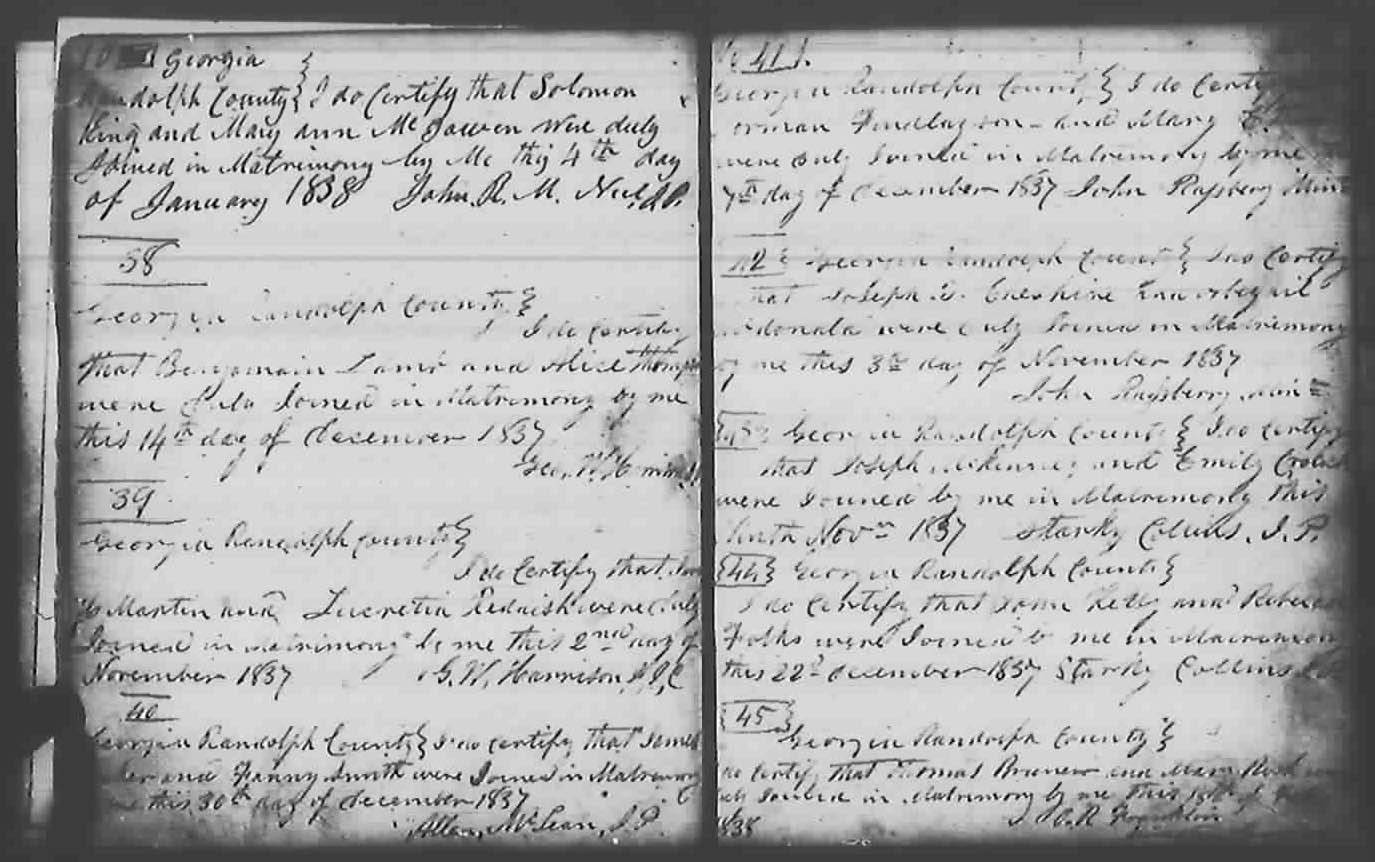 Georgia }
Randolph County } I do Certify that Solomon
King and Mary ann Mc were duly
Joined in Matrimony by Me this 4th day
of January 1838 John R. M. Neel J.P.
38
Georgia Randolph County }
I do Certify
that Benjamain Lamb and Alice
were duly Joined in Matrimony by me
this 14th day of December 1837
Geo. W.
39
Georgia Randolph County }
I do Certify that
Martin and Lucretia were duly
Joined in matrimony by me this 2nd day of
November 1837 G. W. Harrison J.I.C
40
Georgia Randolph County } I do certify that James
and Fanny Smith were Joined in Matrimony
me this 30th day of December 1837
Allen McLean, J.P.
41
Georgia Randolph County } I do Certify
Findlayson and Mary E.
were duly Joined in Matrimony by me
7th day of December 1837 John Raysberry Min
42 } Georgia Randolph County } I do Certify
that Joseph Cheshire
were duly Joined in Matrimony
by me this 3rd day of November 1837
John Raysberry Min
Georgia Randolph County } I do Certify
that Joseph and Emily
were Joined by me in Matrimony this
Novm 1837 Starky Collins, J.P.
{44} Georgia Randolph County }
I do certify that John Kelly and Rebecca
Folks were Joined by me in Matrimony
this 22d December 1837 Starky Collins
45
Georgia Randolph County }
do certify that Thomas and Mary
Joined in Matrimony by me this
1838